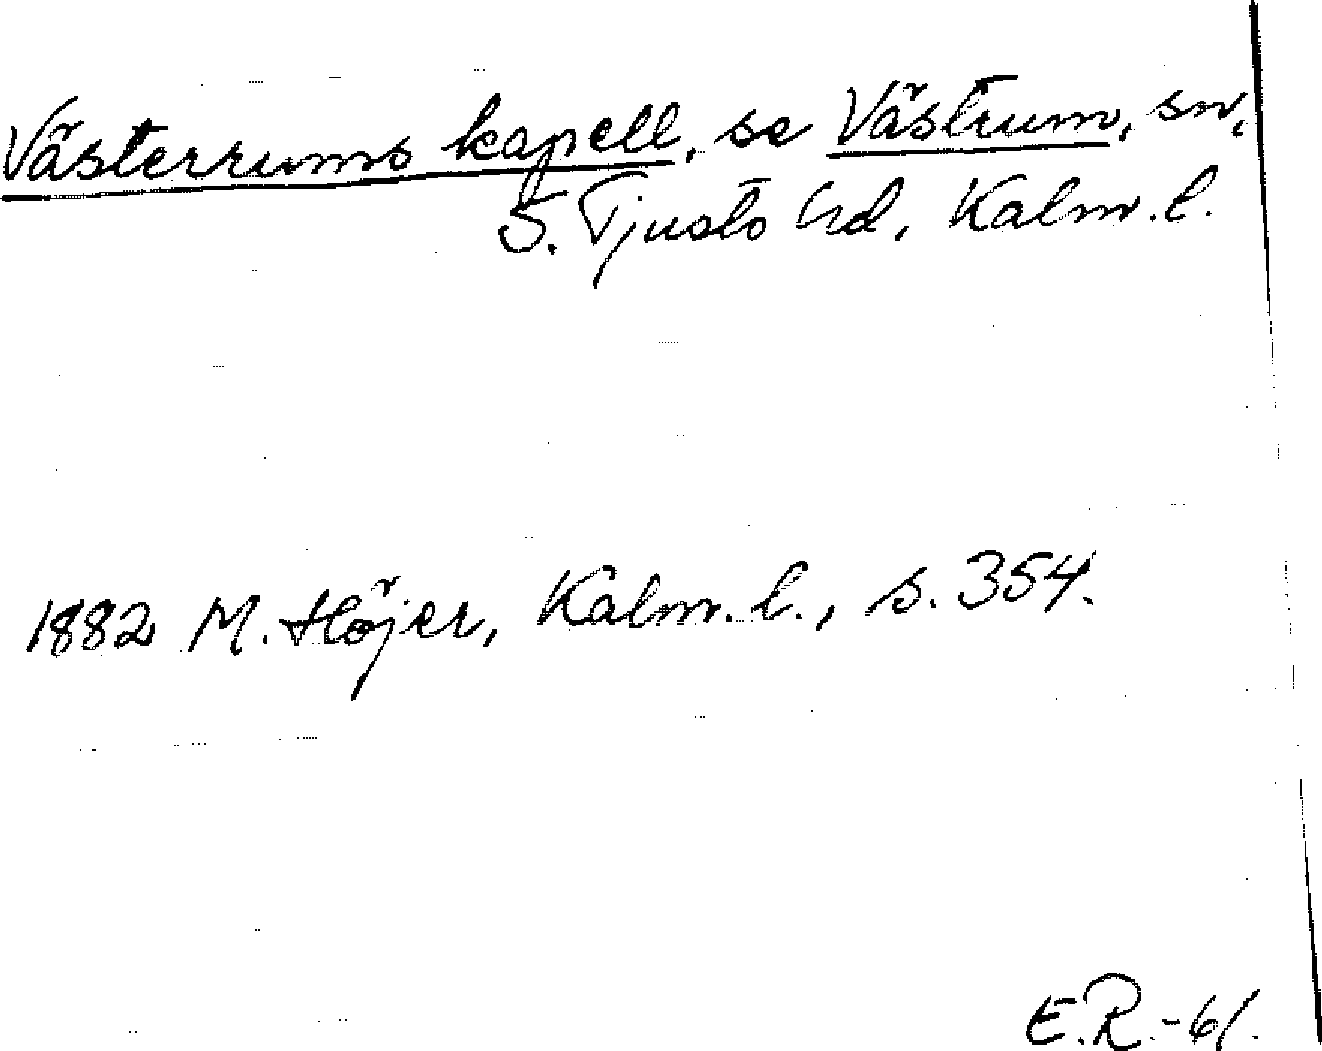 Västerrums kapell, se Västrum, sn,
S. Tjusts hd, Kalm. l.
1882 M. Höjer, Kalm. l., s. 354.
E.R.-61.